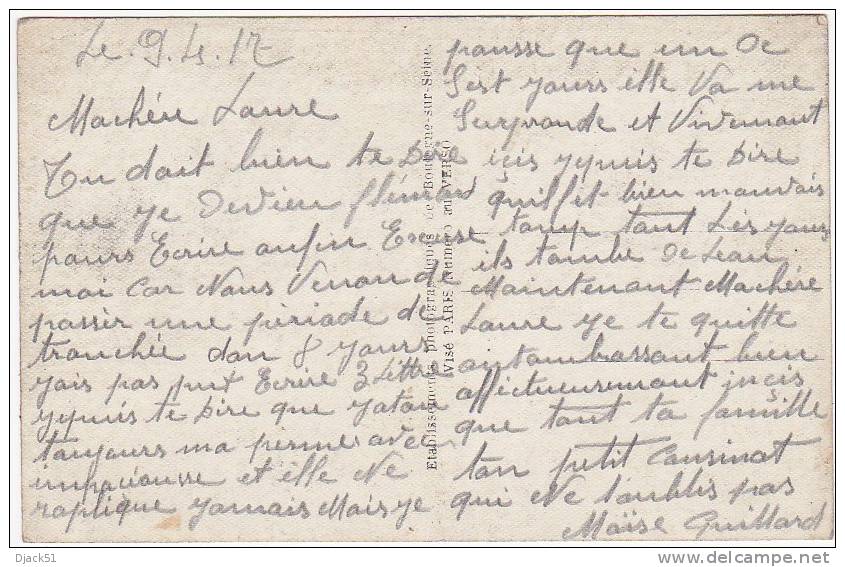 Le. 9. 4. 17
Machére Laure
Tu doit bien te dire
que ye devien flémard
pours Ecrire anfin Excuse
moi car Nous Venon de
passèr une pèriade de
tranchée dan 8 yours
yais pas put Ecrire 3 Lettre
yypuis te dire que yatan
touyours ma perme avec
impaciousse et elle Ne
raplique yamais Mais ye
pansse que un De
Sest yours elle Va me
Surprande et Vivemant
içis yypuis te dire
quilfet bien mauvais
tamp tout Lès yours
ils tombe De Leau
Maintenant Machére
Laure ye te quitte
antambrassant bien
affictueusemant inçis
que tout ta famille
ton petit Cousinot
qui Ne toublis pas
Moïse Guillard
Etablissements photographiques de Boulogne-sur-Seine.
Visé PARIS (Numéro au VERSO
Djack51
delcampe.net